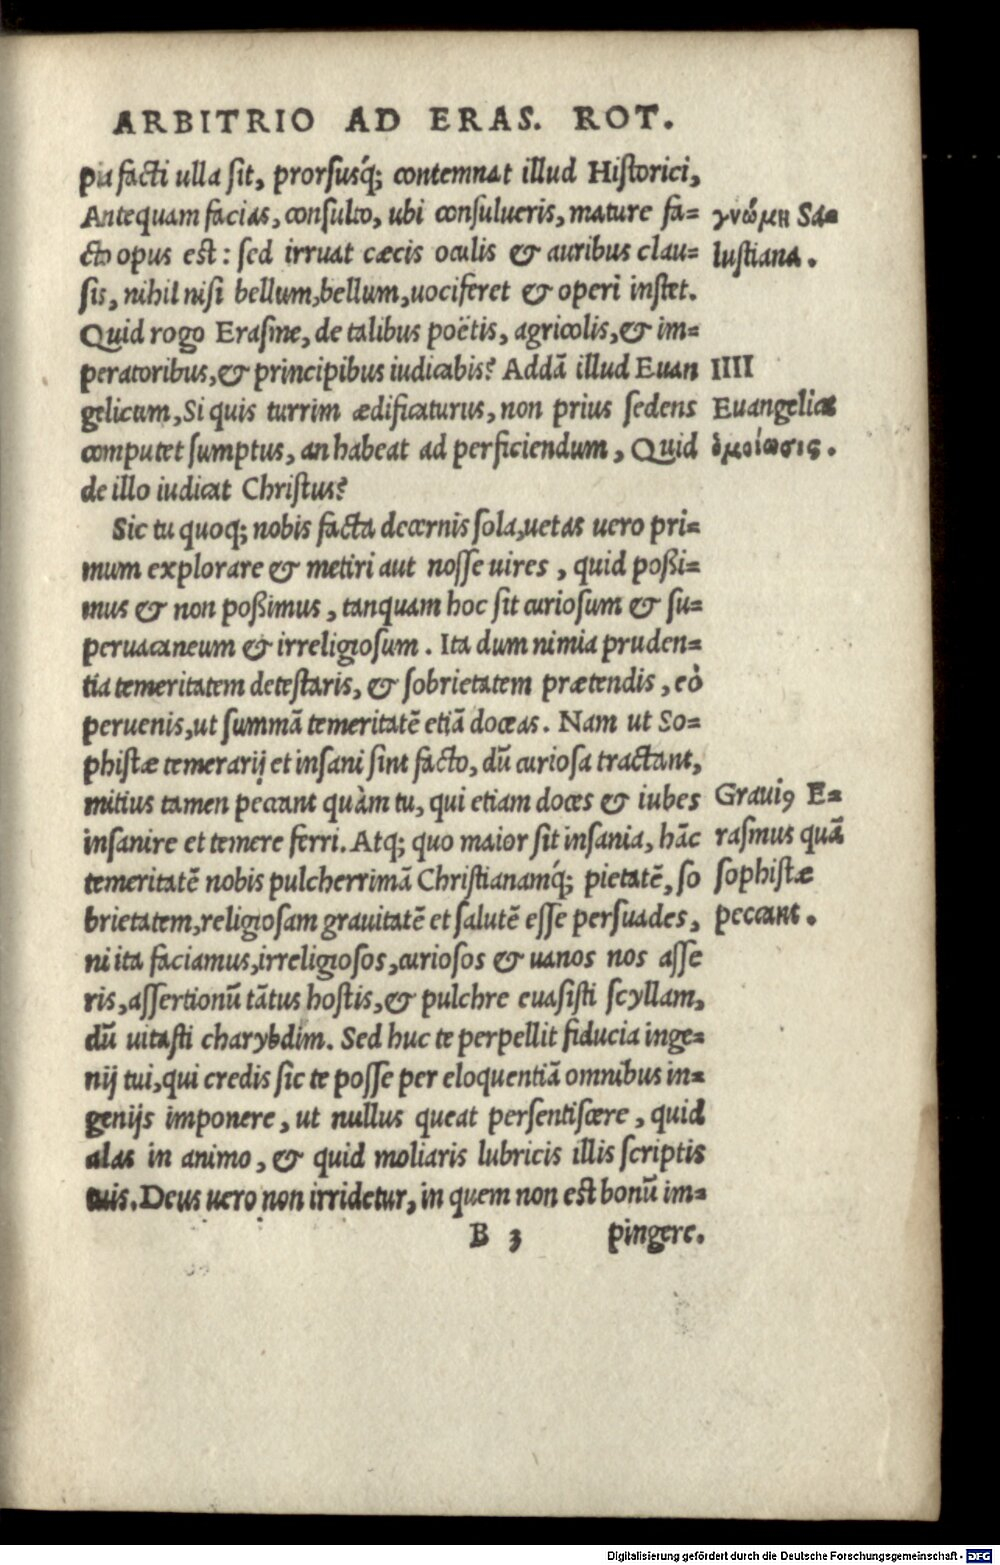 ARBITRIO AD ERAS. ROT.
pia facti ulla sit, prorsusq́; contemnat illud Historici,
Antequam facias, consulto, ubi consulueris, mature fa=
cto opus est: sed irruat cæcis oculis & auribus clau=
sis, nihil nisi bellum, bellum, uociferet & operi instet.
Quid rogo Erasme, de talibus poëtis, agricolis, & im=
peratoribus, & principibus iudicabis? Addā illud Euan
gelicum, Si quis turrim ædificaturus, non prius sedens
computet sumptus, an habeat ad perficiendum, Quid
de illo iudicat Christus?
Sic tu quoq; nobis facta decernis sola, uetas uero pri=
mum explorare & metiri aut nosse uires, quid poßi=
mus & non poßimus, tanquam hoc sit curiosum & su=
peruacaneum & irreligiosum. Ita dum nimia pruden=
tia temeritatem detestaris, & sobrietatem prætendis, eò
peruenis, ut summā temeritatē etiā doceas. Nam ut So=
phistæ temerarij et insani sint facto, dū curiosa tractant,
mitius tamen peccant quàm tu, qui etiam doces & iubes
insanire et temere ferri. Atq; quo maior sit insania, hāc
temeritatē nobis pulcherrimā Christianamq́; pietatē, so
brietatem, religiosam grauitatē et salutē esse persuades,
ni ita faciamus, irreligiosos, curiosos & uanos nos asse
ris, assertionū tātus hostis, & pulchre euasisti scyllam,
dū uitasti charybdim. Sed huc te perpellit fiducia inge=
nij tui, qui credis sic te posse per eloquentiā omnibus in=
genijs imponere, ut nullus queat persentiscere, quid
alas in animo, & quid moliaris lubricis illis scriptis
tuis. Deus uero non irridetur, in quem non est bonū im=
B 3 pingere.
γνώμη Sa=
lustiana.
IIII
Euangelicæ
ὁμοίωσις.
Grauiꝰ E=
rasmus quā
sophistæ
peccant.
Digitalisierung gefördert durch die Deutsche Forschungsgemeinschaft - DFG